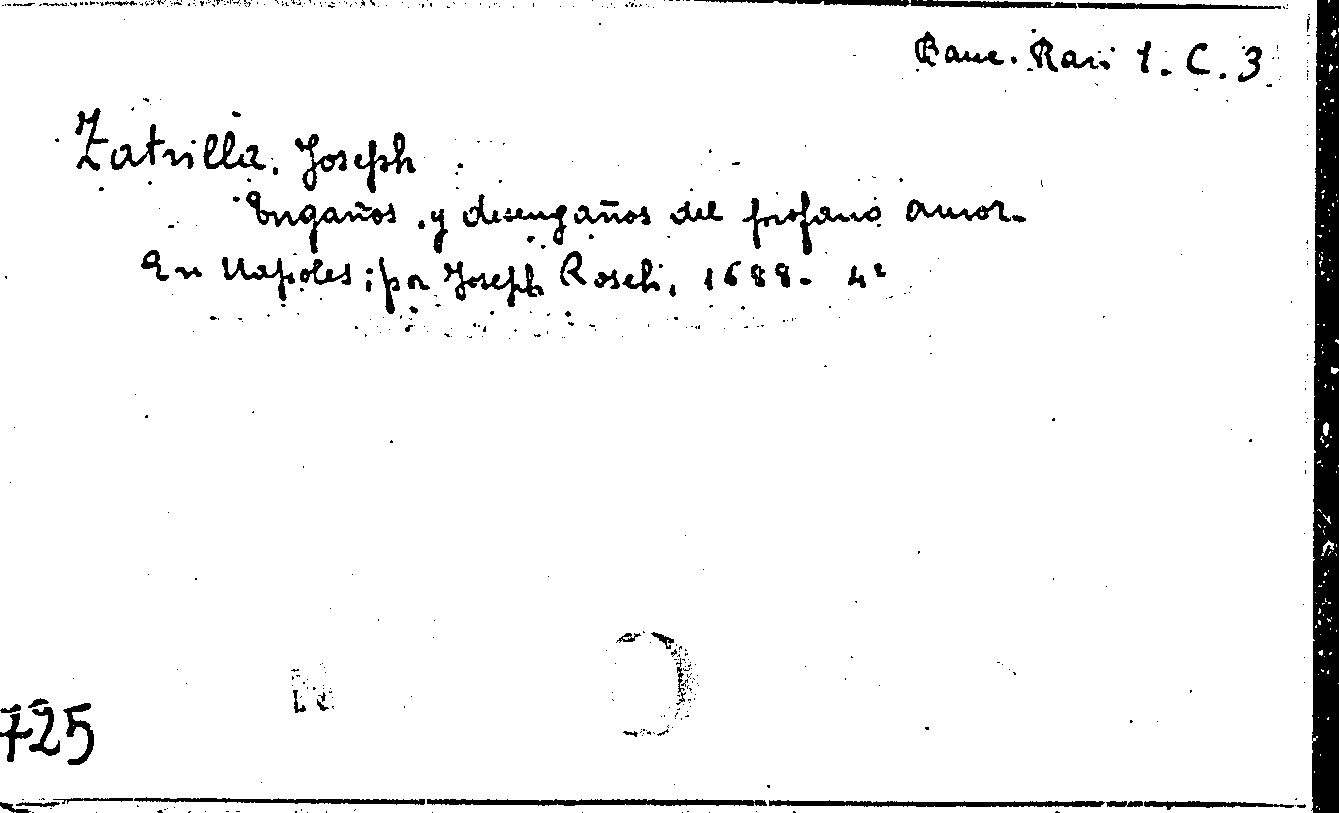 Banc. Rari 1. C. 3
Zatrilla, Joseph
Engaños, y desengaños del profano amor.
En Napoles; por Joseph Roseli, 1688. 4º
725